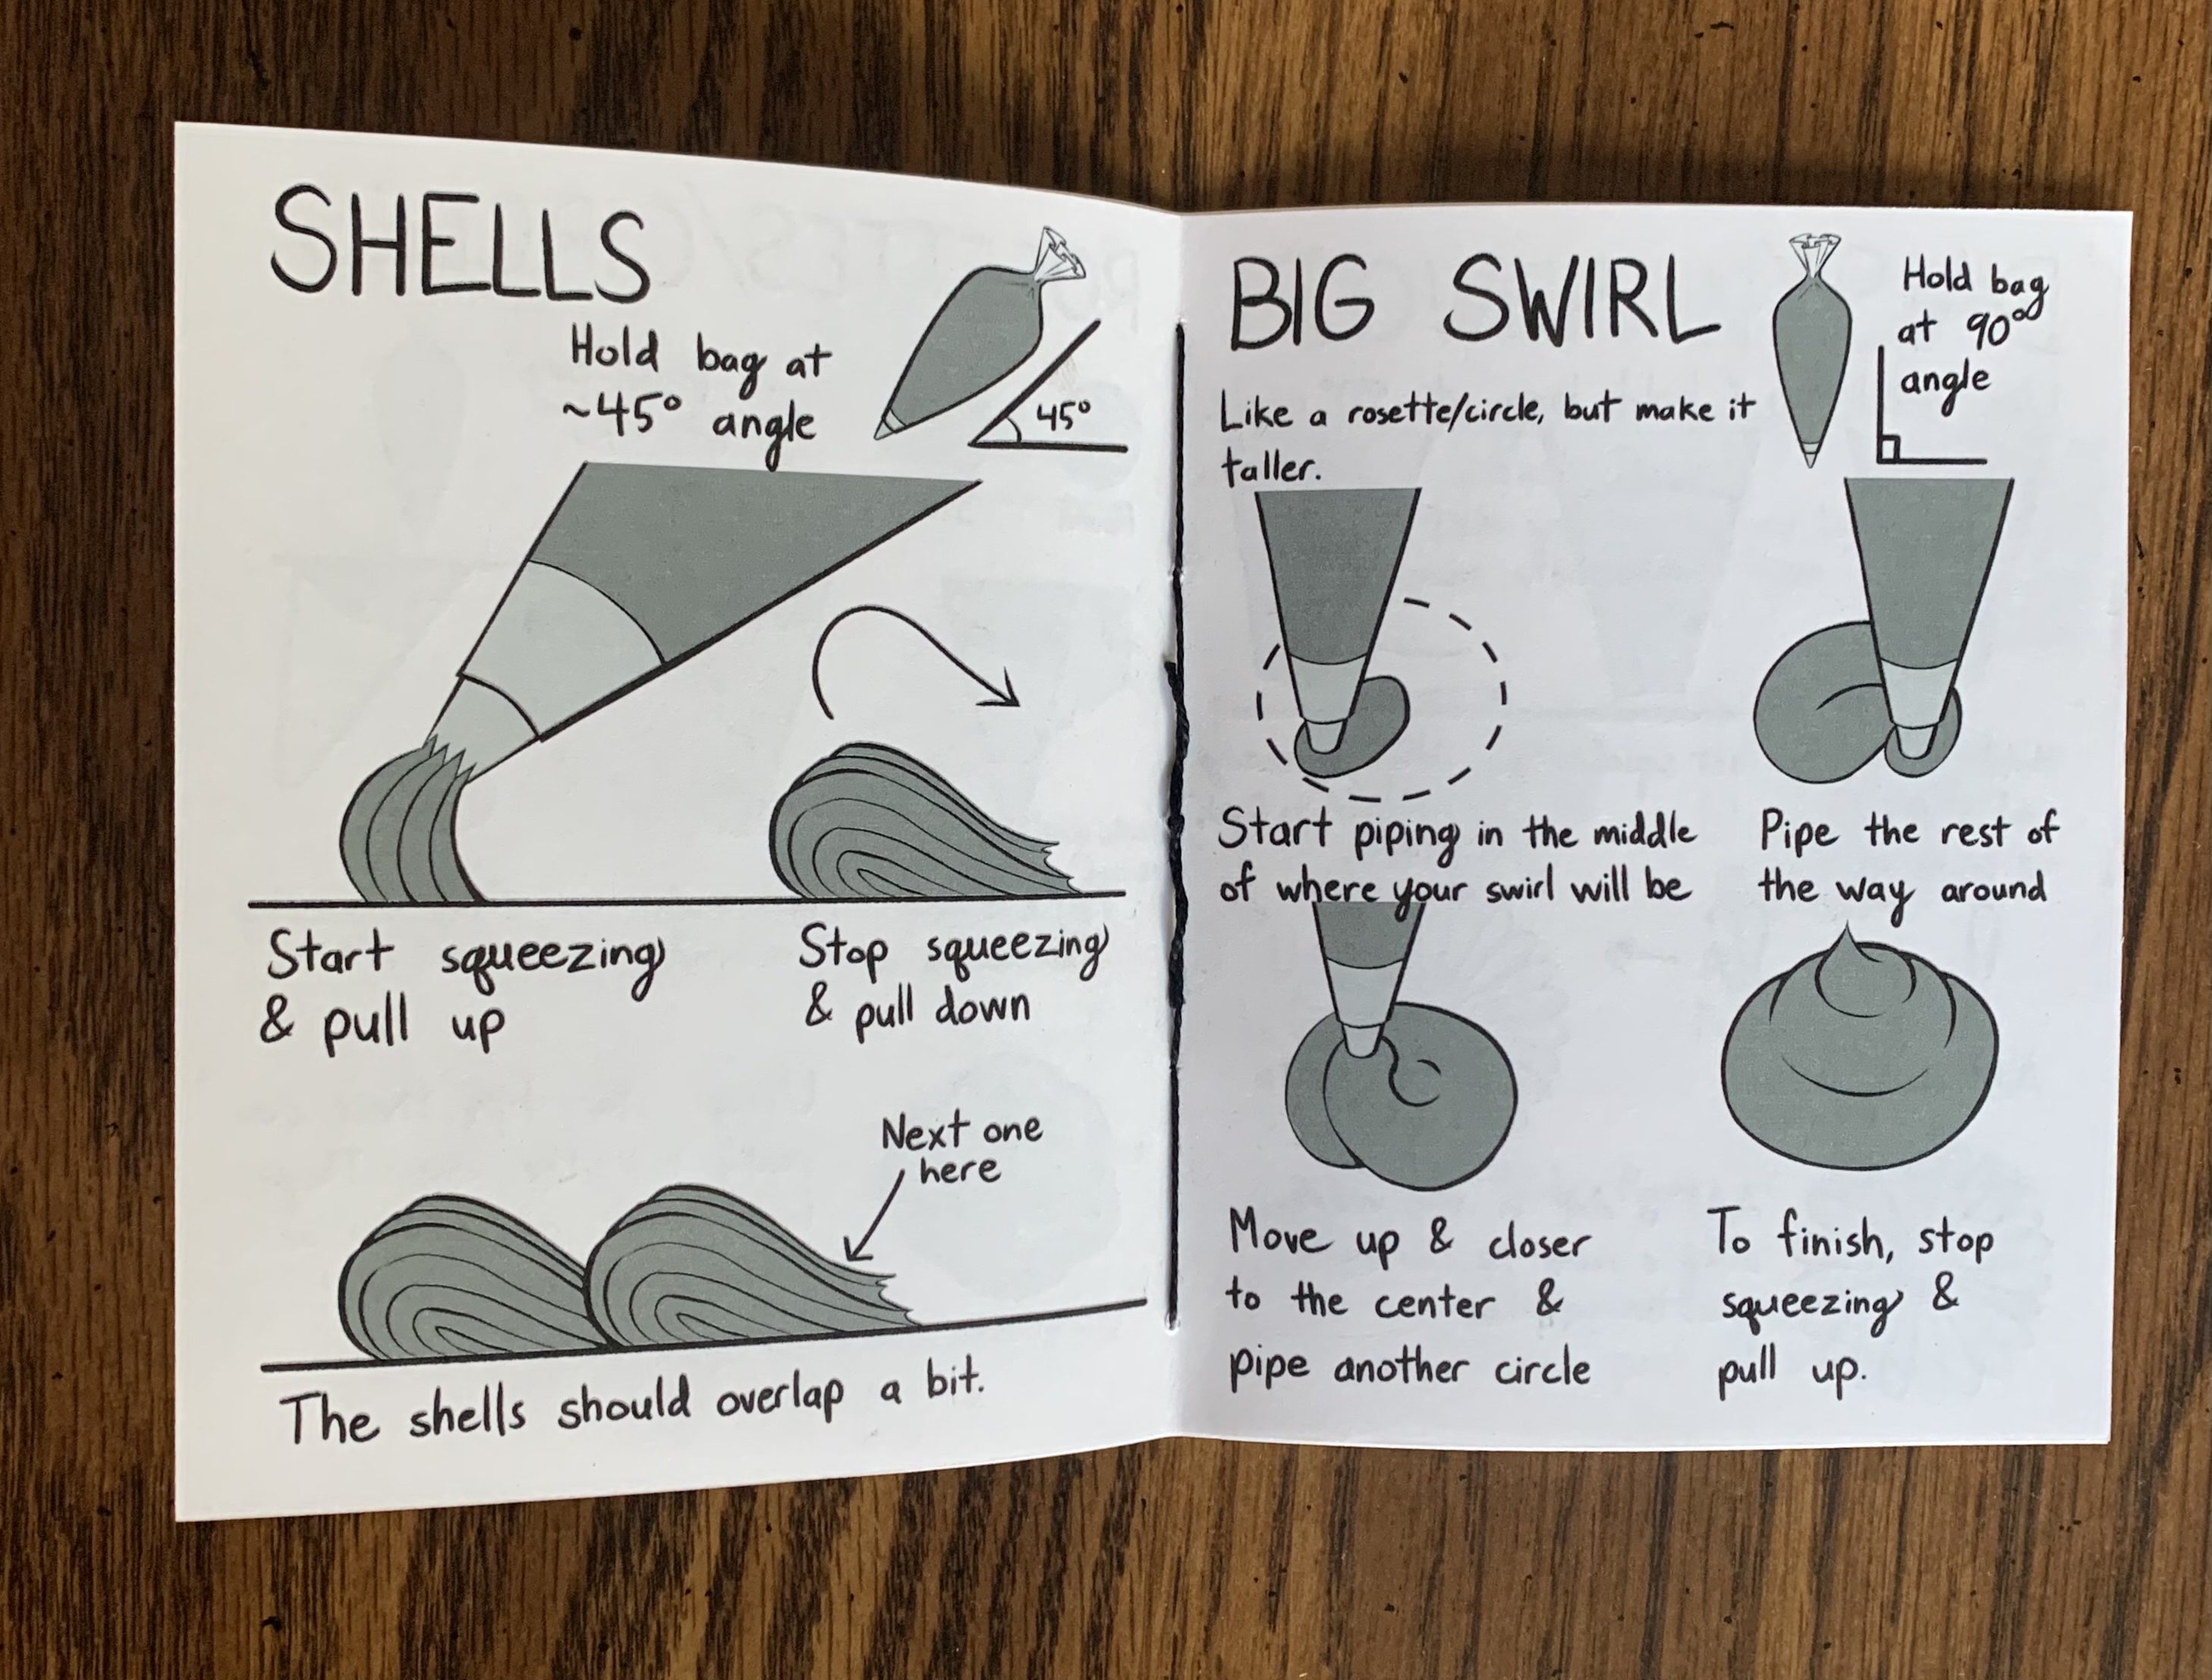 SHELLS
Hold bag at
~45° angle
45°
Start squeezing
& pull up
Stop squeezing
& pull down
Next one
here
The shells should overlap a bit.
BIG SWIRL
Hold bag
at 90°
angle
Like a rosette/circle, but make it
taller.
Start piping in the middle
of where your swirl will be
Pipe the rest of
the way around
Move up & closer
to the center &
pipe another circle
To finish, stop
squeezing &
pull up.